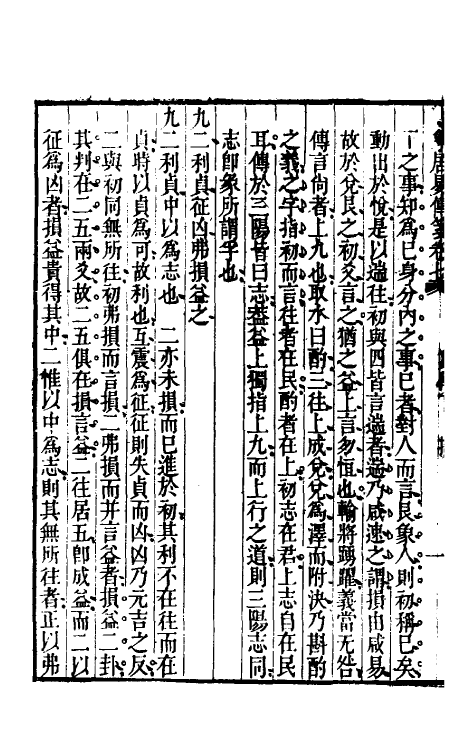 易傳
一之事知爲已身分内之事已者對人而言艮象人則初稱已矣
動出於悅是以遄往初與四皆言遄者遄乃咸速之謂損由咸易
故於兌艮之初爻言之猶之益上言勿恒也輸將踴躍義當无咎
傳言尚者上九也取水曰酌二往上成兌兌爲澤而附決乃斟酌
之義之字指初而言往者在民酌者在上初志在君上志自在民
耳傳於三陽皆曰志益上獨指上九而上行之道則三陽志同
志卽象所謂孚也
九二利貞征凶弗損益之
九二利貞中以爲志也 二亦未損而已進於初其利不在往而在
貞時以貞爲可故利也互震爲征征則失貞而凶凶乃元吉之反
二與初同無所往初弗損而言損二弗損而幷言益者損益二卦
其判在二五兩爻故二五俱在損言益二往居五卽成益而二以
征爲凶者損益貴得其中二惟以中爲志則其無所往者正以弗